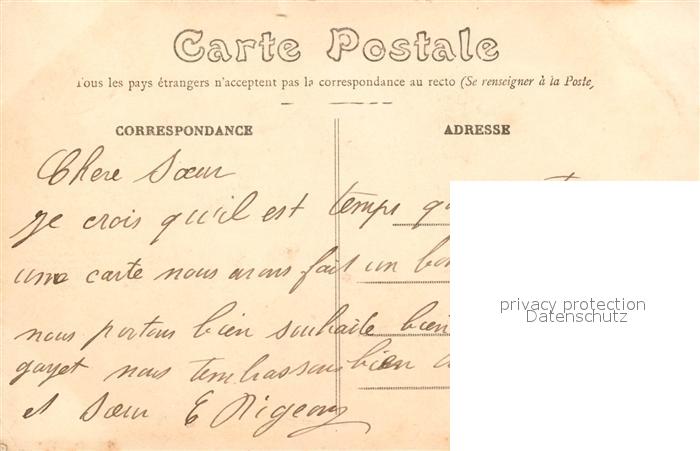 Carte Postale
Tous les pays étrangers n'acceptent pas la correspondance au recto (Se renseigner à la Poste)
CORRESPONDANCE
ADRESSE
Chere Sœur
je crois qu'il est temps
une carte nous avons fait un bon
nous portons bien souhaite bien
nous tembrassons bien
et Sœur E Pigeon
privacy protection
Datenschutz